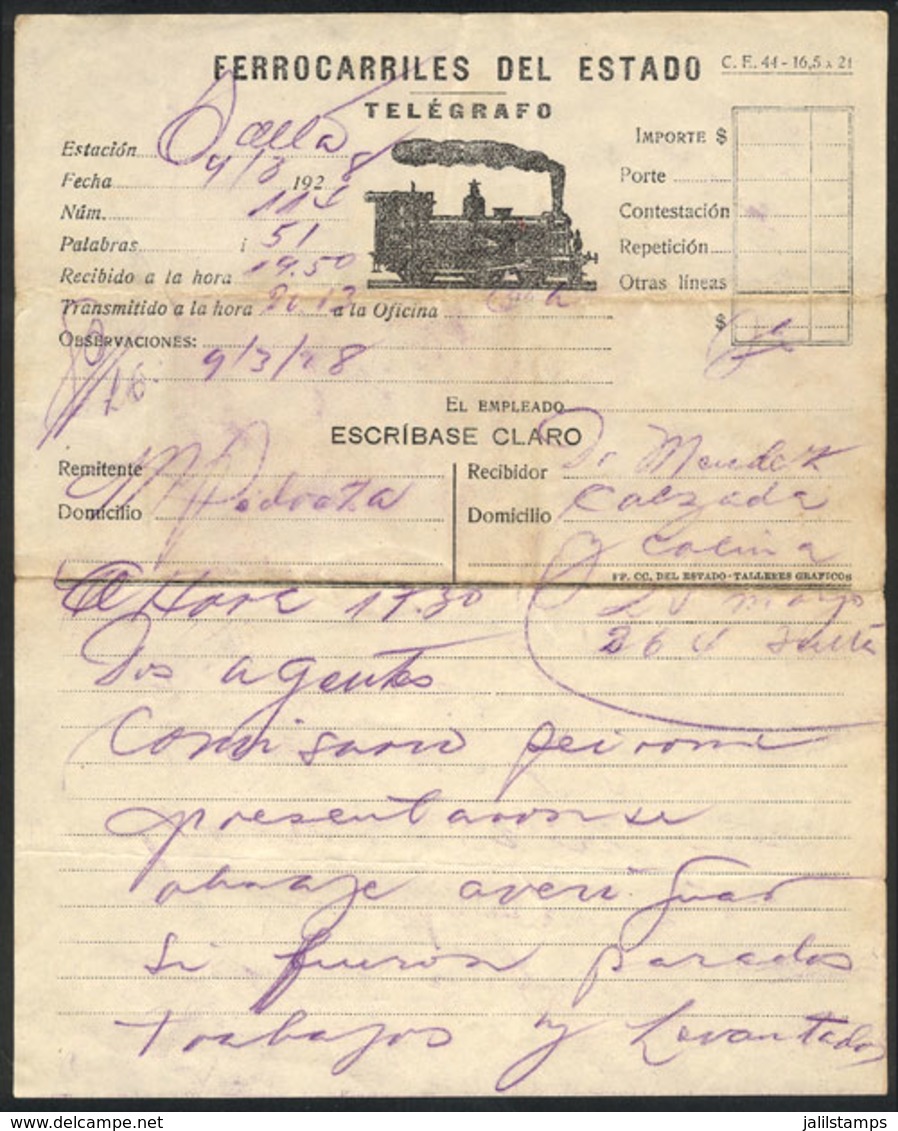 FERROCARRILES DEL ESTADO
C. E. 44 - 16,5 x 21
TELÉGRAFO
Estación Salta
Fecha 9/3 1928
Núm. 114
Palabras 51
Recibido a la hora 19.50
Transmitido a la hora a la Oficina
OBSERVACIONES: 9/3/28
IMPORTE $
Porte
Contestación
Repetición
Otras líneas
$
EL EMPLEADO
ESCRÍBASE CLARO
Remitente
Domicilio Pedroza
Recibidor Dr Mendez
Domicilio Calzada
y Colina
FF. CC. DEL ESTADO - TALLERES GRAFICOS
20 marzo
264 Salta
Hora 17.30
Dos agentes
Comisario
presentaronse
obraje averiguar
si fueron parados
trabajos y Levantados
jalilstamps